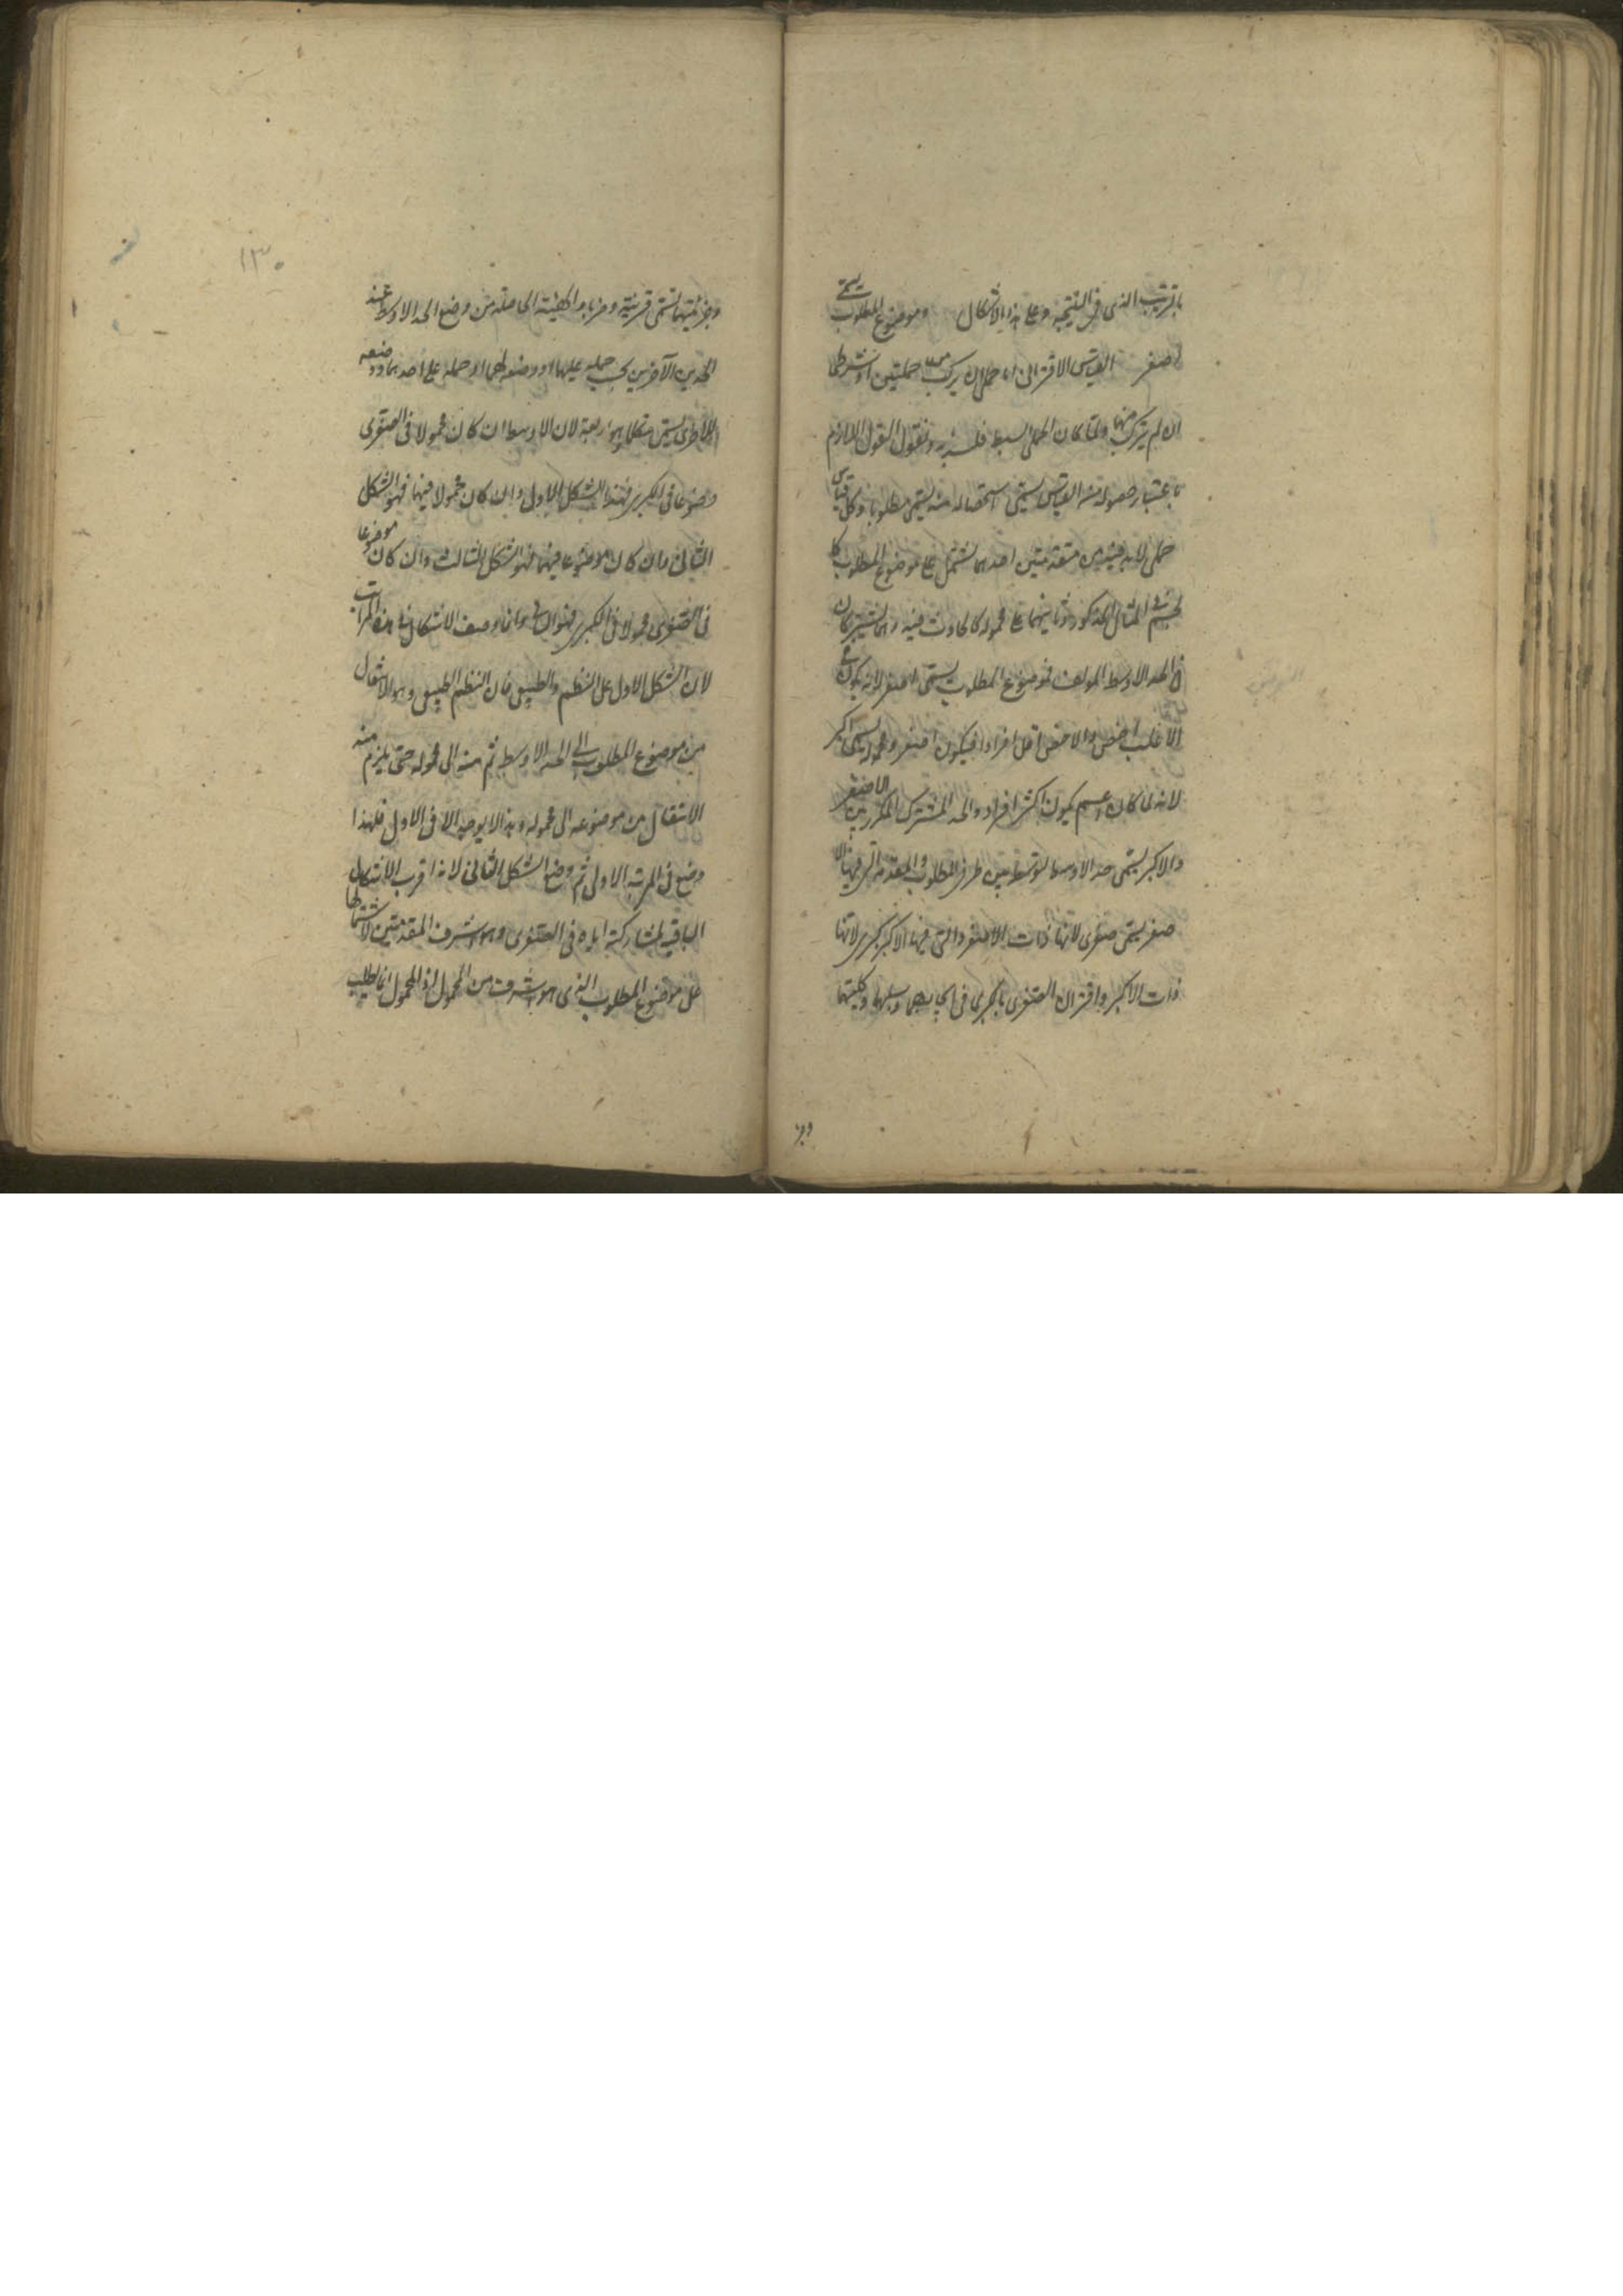 بالترتيب الذى فى النتيجة وعلى هذا الاشكال وموضوع المطلوب يسمى
اصغر القياس الاقترانى اما حملى ان تركب من حمليتين او شرطى
ان لم يتركب منهما ولما كان الحملى ابسط فلنبدأ به ونقول القول اللازم
باعتبار حصوله من القياس يسمى استحصاله منه يسمى مطلوبا وكل قياس
حملى لابد فيه من مقدمتين احدهما تشتمل على موضوع المطلوب كا
لجسم فى المثال المذكور وثانيهما على محموله كالحادث فيه وهما تشتركان
فى الحد الاوسط المولف فموضوع المطلوب يسمى اصغر لانه يكون فى
الاغلب اخص والاخص اقل افرادا فيكون اصغر ومحموله يسمى اكبر
لانه لما كان اعم يكون اكثر افرادا والحد المشترك المكرر بين الاصغر
والاكبر يسمى حد الاوسط لتوسطه بين طرفى المطلوب والمقدمة التى فيها الا
صغر يسمى صغرى لانها ذات الاصغر والتى فيها الاكبر كبرى لانها
ذات الاكبر واقتران الصغرى بالكبرى فى ايجابهما وسلبهما وكليتهما
وجز
١٣٠
وجزئيتهما تسمى قرينة وضربا والهيئة الحاصلة من وضع الحد الاوسط عند
الحدين الآخرين بحسب حمله عليهما او وضعه لهما او حمله على احدهما ووضعه
للاخرى يسمى شكلا وهو اربعة لان الاوسط ان كان محمولا فى الصغرى
وموضوعا فى الكبرى فهذا الشكل الاول وان كان محمولا فيهما فهو الشكل
الثانى وان كان موضوعا فيهما فهو الشكل الثالث وان كان موضوعا
فى الصغرى ومحمولا فى الكبرى فهو الرابع وانما وضعت الاشكال فى هذه المراتب
لان الشكل الاول على النظم الطبيعى فان النظم الطبيعى وهو الانتقال
من موضوع المطلوب الى الحد الاوسط ثم منه الى محموله حتى يلزم منه
الانتقال من موضوعه الى محموله وهذا لا يوجد الا فى الاول فلهذا
وضع فى المرتبة الاولى ثم وضع الشكل الثانى لانه اقرب الاشكال
الباقية لمشاركته اياه فى الصغرى وهى اشرف المقدمتين لاشتمالها
على موضوع المطلوب الذى هو اشرف من المحمول اذ المحمول انما يطلب